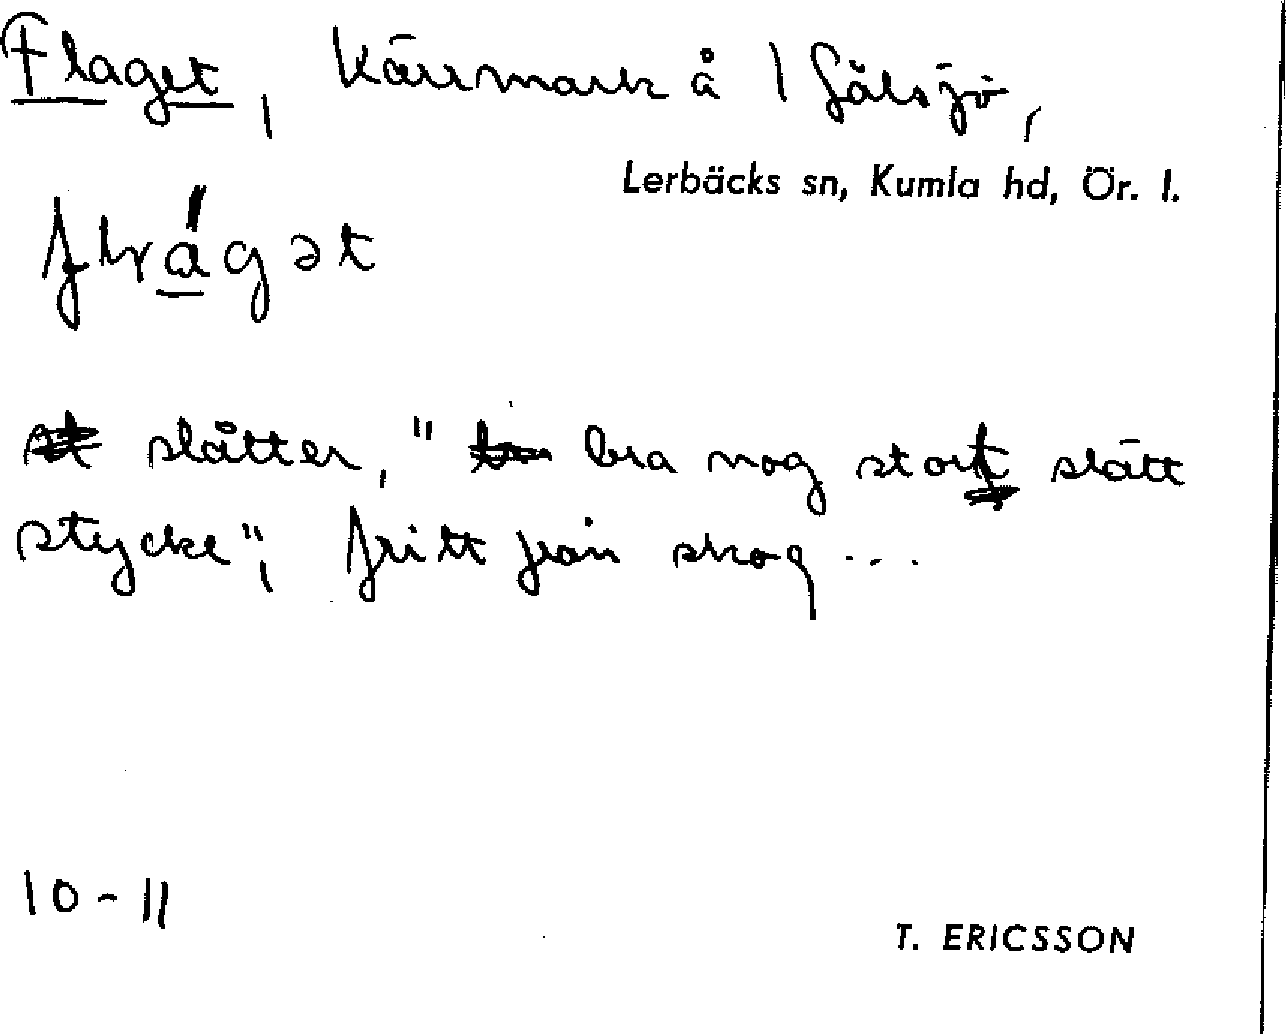 Flaget, Kärrmark å 1 Gålsjö,
Lerbäcks sn, Kumla hd, Ör. l.
slåtter, " bra nog stort slätt
stycke", fritt från skog ...
10-11
T. ERICSSON